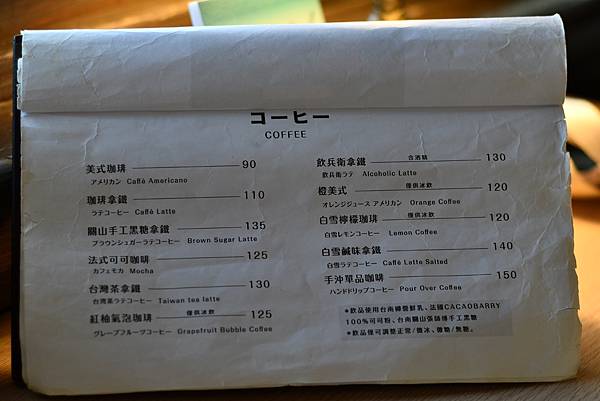 コーヒー
COFFEE
美式咖啡 90
アメリカン Caffè Americano
珈琲拿鐵 110
ラテコーヒー Caffè Latte
關山手工黑糖拿鐵 135
ブラウンシュガーラテコーヒー Brown Sugar Latte
法式可可咖啡 125
カフェモカ Mocha
台灣茶拿鐵 130
台湾茶ラテコーヒー Taiwan tea latte
紅柚氣泡珈琲 僅供冰飲 125
グレープフルーツコーヒー Grapefruit Bubble Coffee
飲兵衛拿鐵 含酒精 130
飲兵衛ラテ Alcoholic Latte
橙美式 僅供冰飲 120
オレンジジュース アメリカン Orange Coffee
白雪檸檬珈琲 僅供冰飲 120
白雪レモンコーヒー Lemon Coffee
白雪鹹味拿鐵 140
白雪ラテコーヒー Caffè Latte Salted
手沖單品咖啡 150
ハンドドリップコーヒー Pour Over Coffee
*飲品使用台南柳營鮮乳、法國CACAOBARRY
100%可可粉、台南關山張師傅手工黑糖
*飲品僅可調整正常/微冰、微糖/無糖。